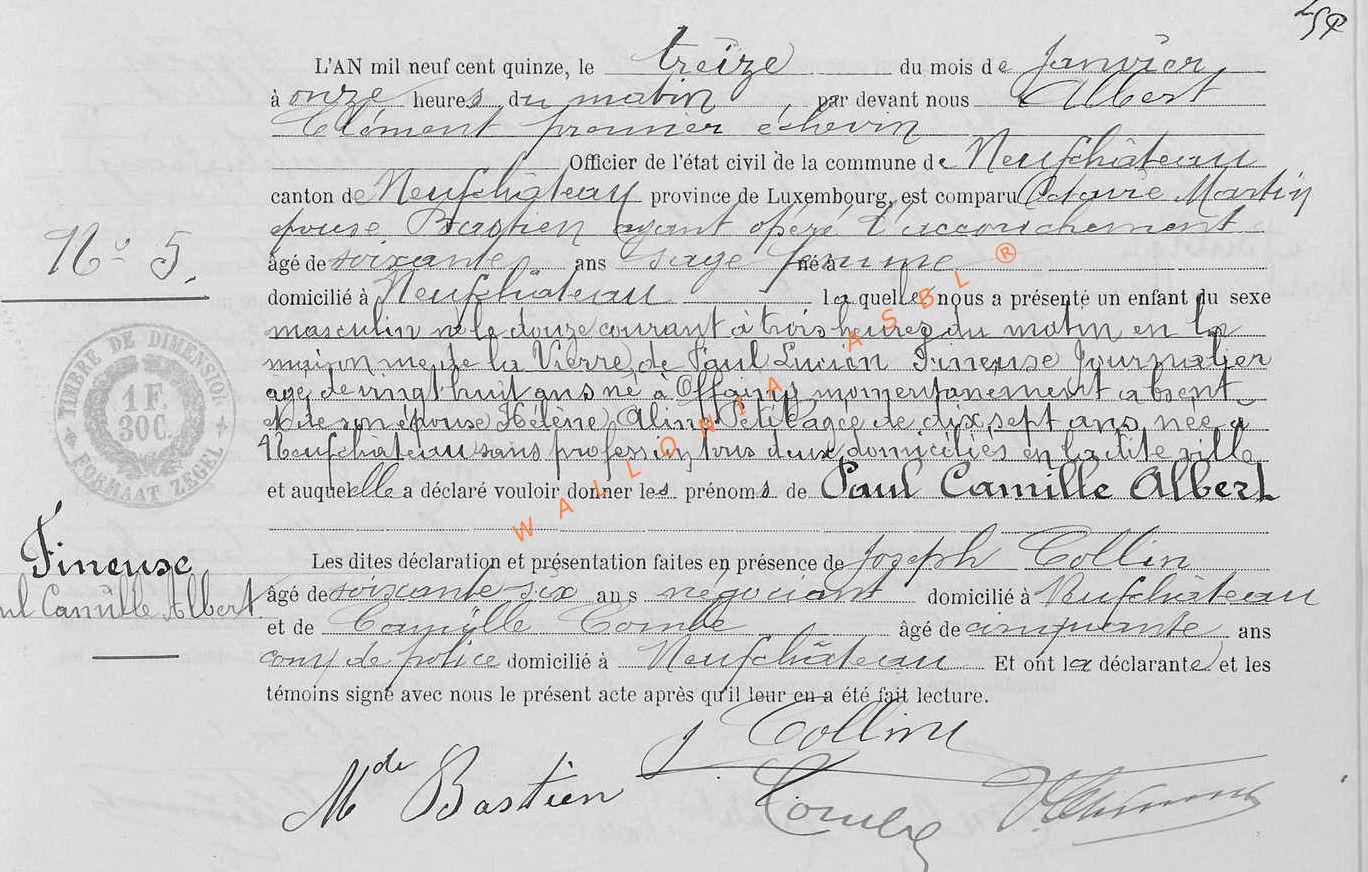 L'AN mil neuf cent quinze, le treize du mois de Janvier
à onze heures du matin, par devant nous Albert
Clément premier échevin
Officier de l'état civil de la commune de Neufchâteau
canton de Neufchâteau province de Luxembourg, est comparu Octavie Martin
épouse Bastien ayant opéré l'accouchement
N° 5.
âgé de soixante ans sage femme né à
domicilié à Neufchâteau laquelle nous a présenté un enfant du sexe
masculin né le douze courant à trois heures du matin en la
maison rue de la Vierre, de Paul Lucien Fineuse Journalier
agé de vingt huit ans né à Offaing momentanement absent
et de son épouse Hélène Aline Petit agée de dix sept ans née à
Neufchâteau sans profession, tous deux domiciliés en la dite ville
TIMBRE DE DIMENSION
1 F.
30 C.
FORMAAT ZEGEL
et auquel elle a déclaré vouloir donner les prénoms de Paul Camille Albert
WALLONIA ASBL ®
Fineuse
ul Camille Albert
Les dites déclaration et présentation faites en présence de Joseph Collin
âgé de soixante six ans négociant domicilié à Neufchâteau
et de Camille Combe âgé de cinquante ans
com de police domicilié à Neufchâteau Et ont la déclarante et les
témoins signé avec nous le présent acte après qu'il leur en a été fait lecture.
J Collin
Mde Bastien
Combe